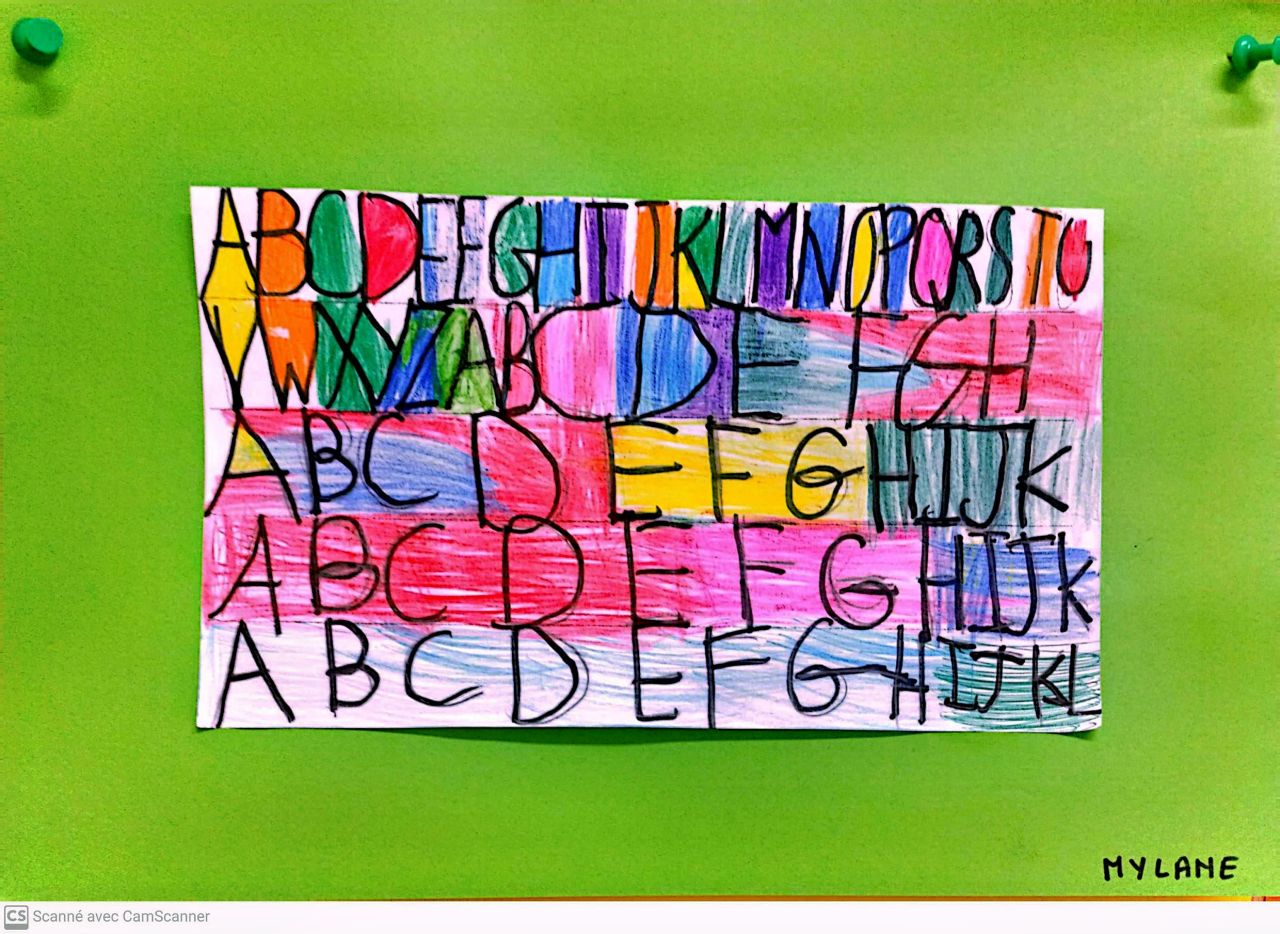 ABCDEFGHIJKLMNOPQRSTU
VWXYZABCDEFGH
ABCDEFGHIJK
ABCDEFGHIJK
ABCDEFGHIJKL
MYLANE
CS Scanné avec CamScanner